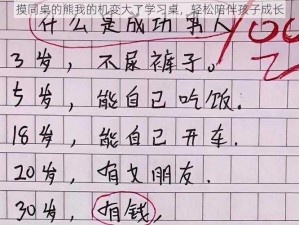 摸同桌的熊我的机变大了学习桌，轻松陪伴孩子成长
什么是成功男人
100
3岁，不尿裤子。
5岁，能自己吃饭.
18岁，能自己开车.
20岁，有女朋友.
30岁，有钱,